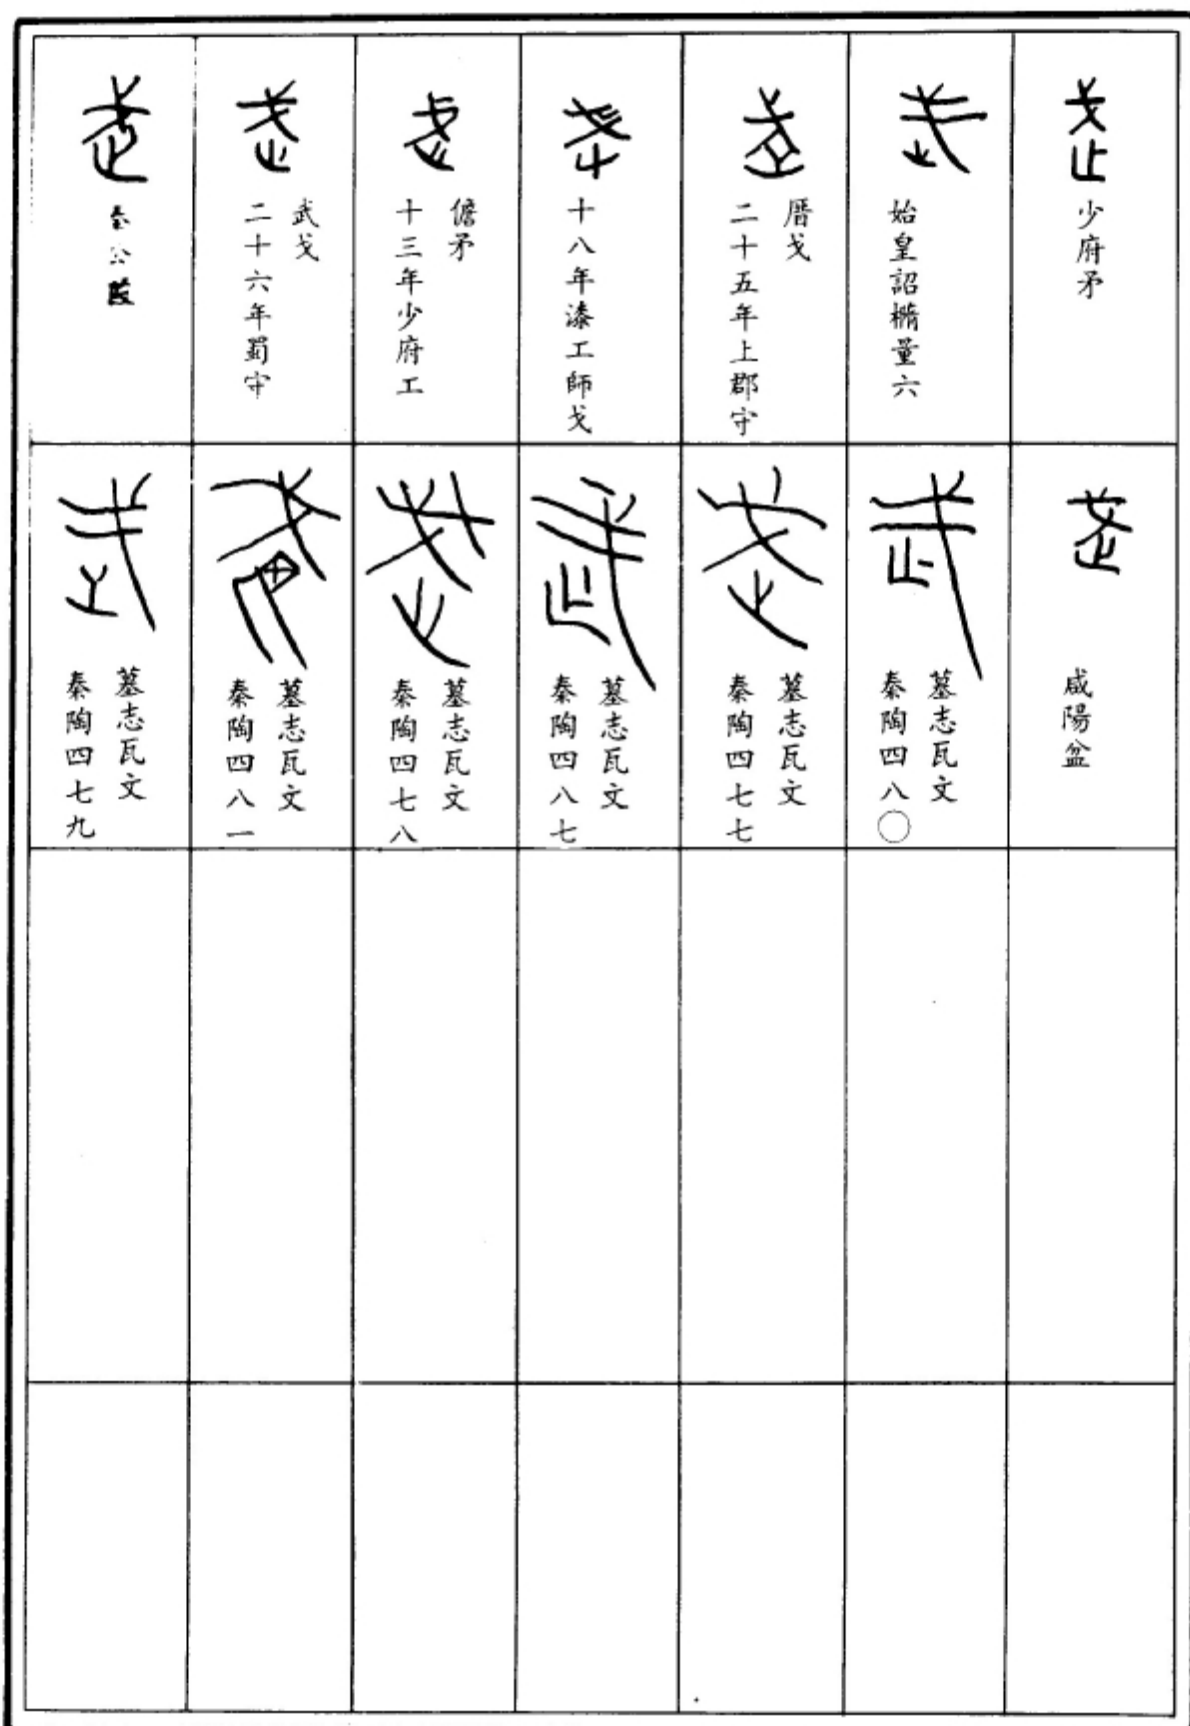 武
少府矛
武
始皇詔橢量六
武
二十五年上郡守
厝戈
武
十八年漆工師戈
武
十三年少府工
儋矛
武
二十六年蜀守
武戈
武
公
武
咸陽盆
武
墓志瓦文
秦陶四八〇
武
墓志瓦文
秦陶四七七
武
墓志瓦文
秦陶四八七
武
墓志瓦文
秦陶四七八
墓志瓦文
秦陶四八一
武
墓志瓦文
秦陶四七九